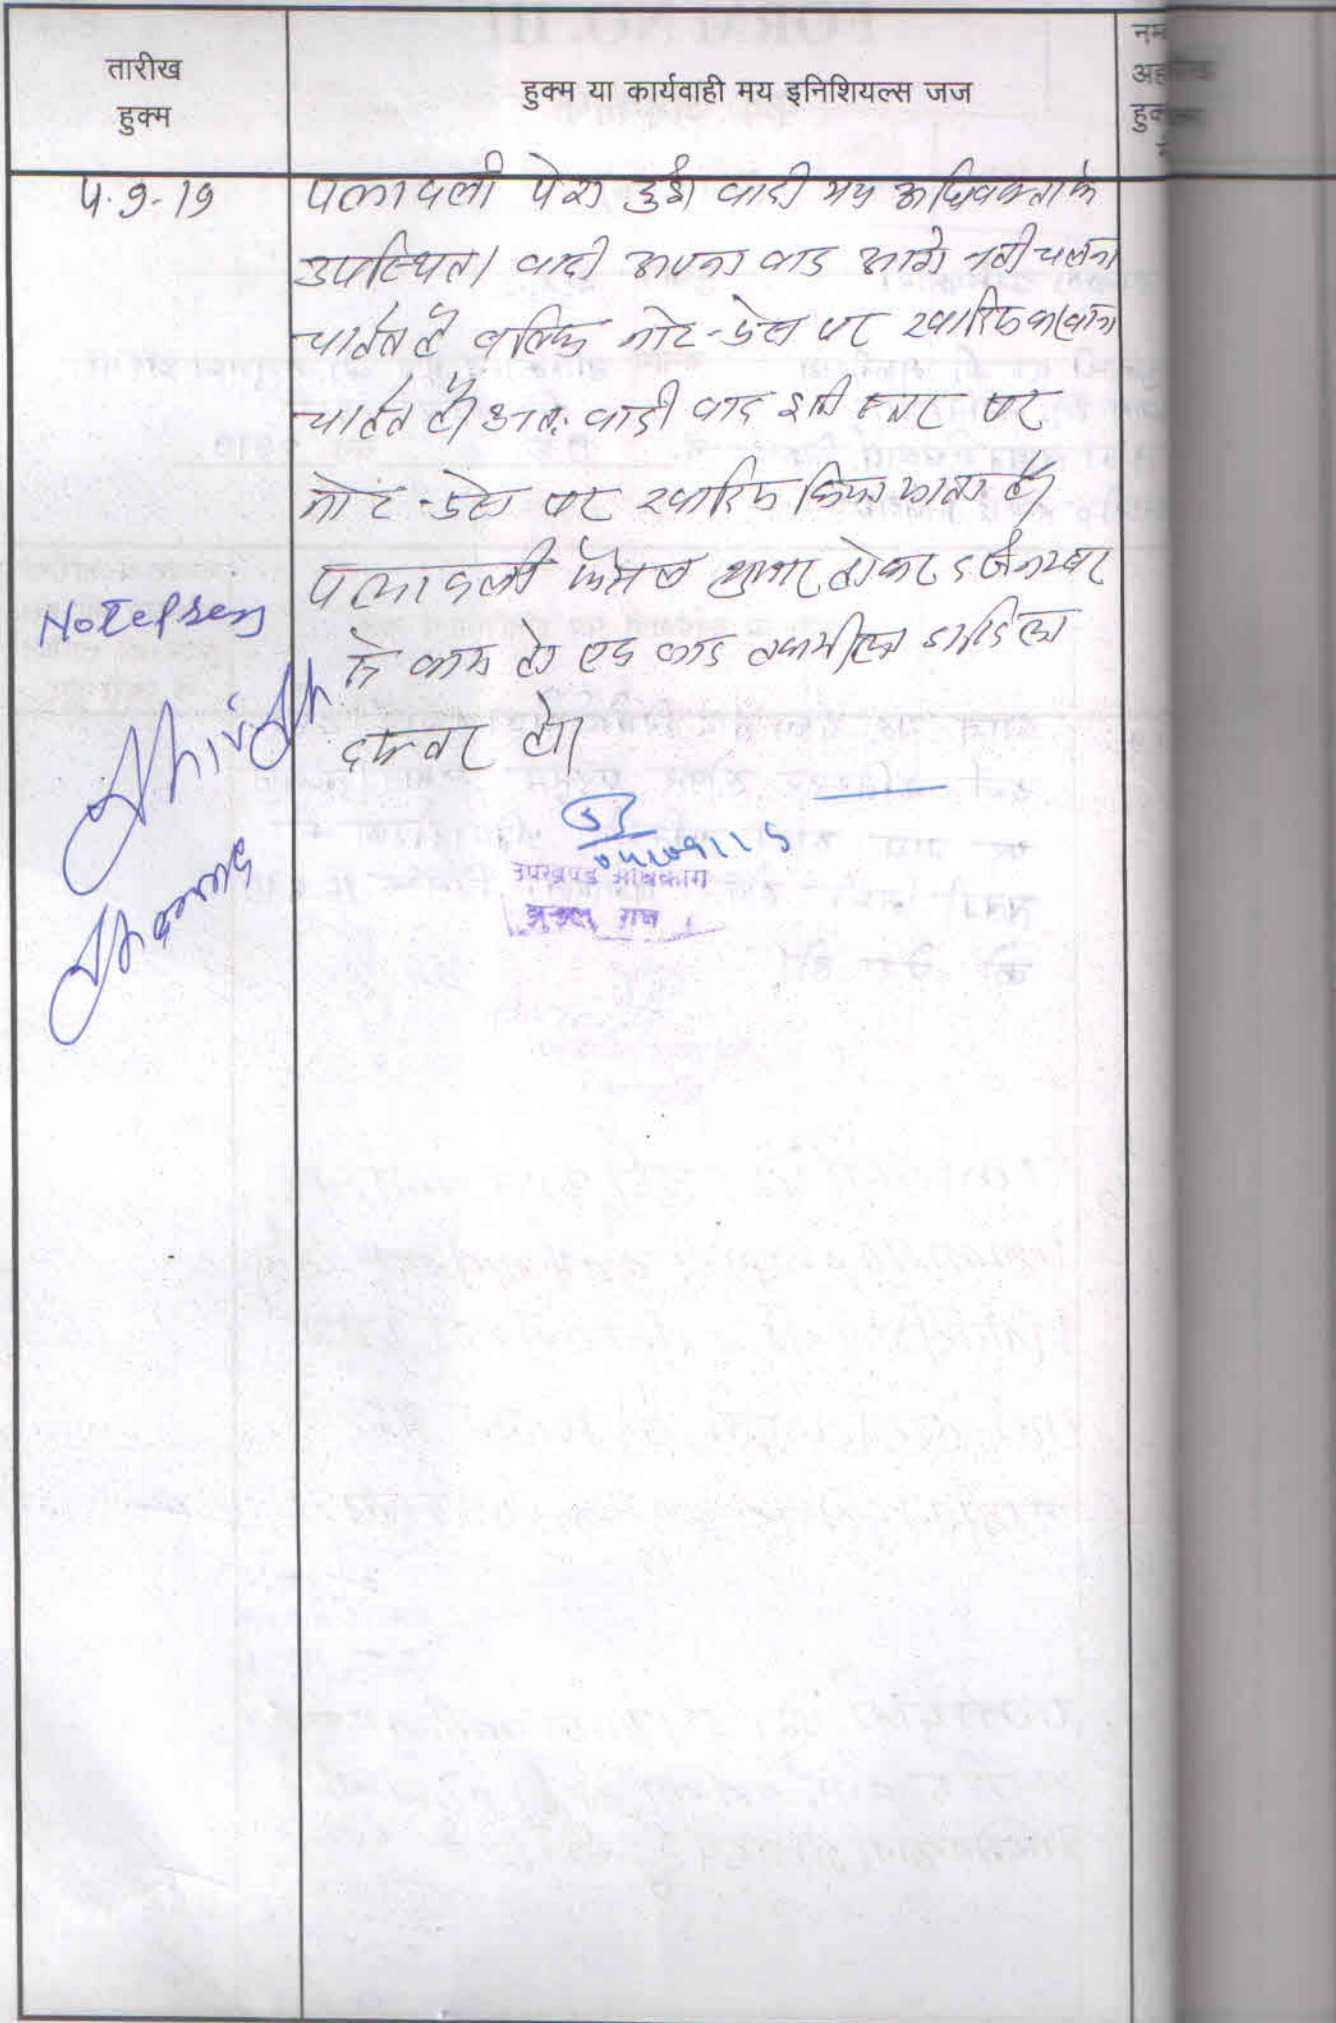 तारीख
हुक्म
हुक्म या कार्यवाही मय इनिशियल्स जज
4.9.19
पत्रावली पेश हुई। वादी मय अधिवक्ता के
उपस्थित। वादी अपना वाद आगे नहीं चलाना
चाहता है बल्कि नोट-प्रेस पर खारिज करवाना
चाहता है। अतः वादी वाद इसी स्तर पर
नोट-प्रेस पर खारिज किया जाता है।
पत्रावली फैसल शुमार होकर दर्ज नम्बर
से कम हो एवं बाद तकमील दाखिल
दफ्तर हो।
Notepress
04/09/19
उपखण्ड अधिकारी